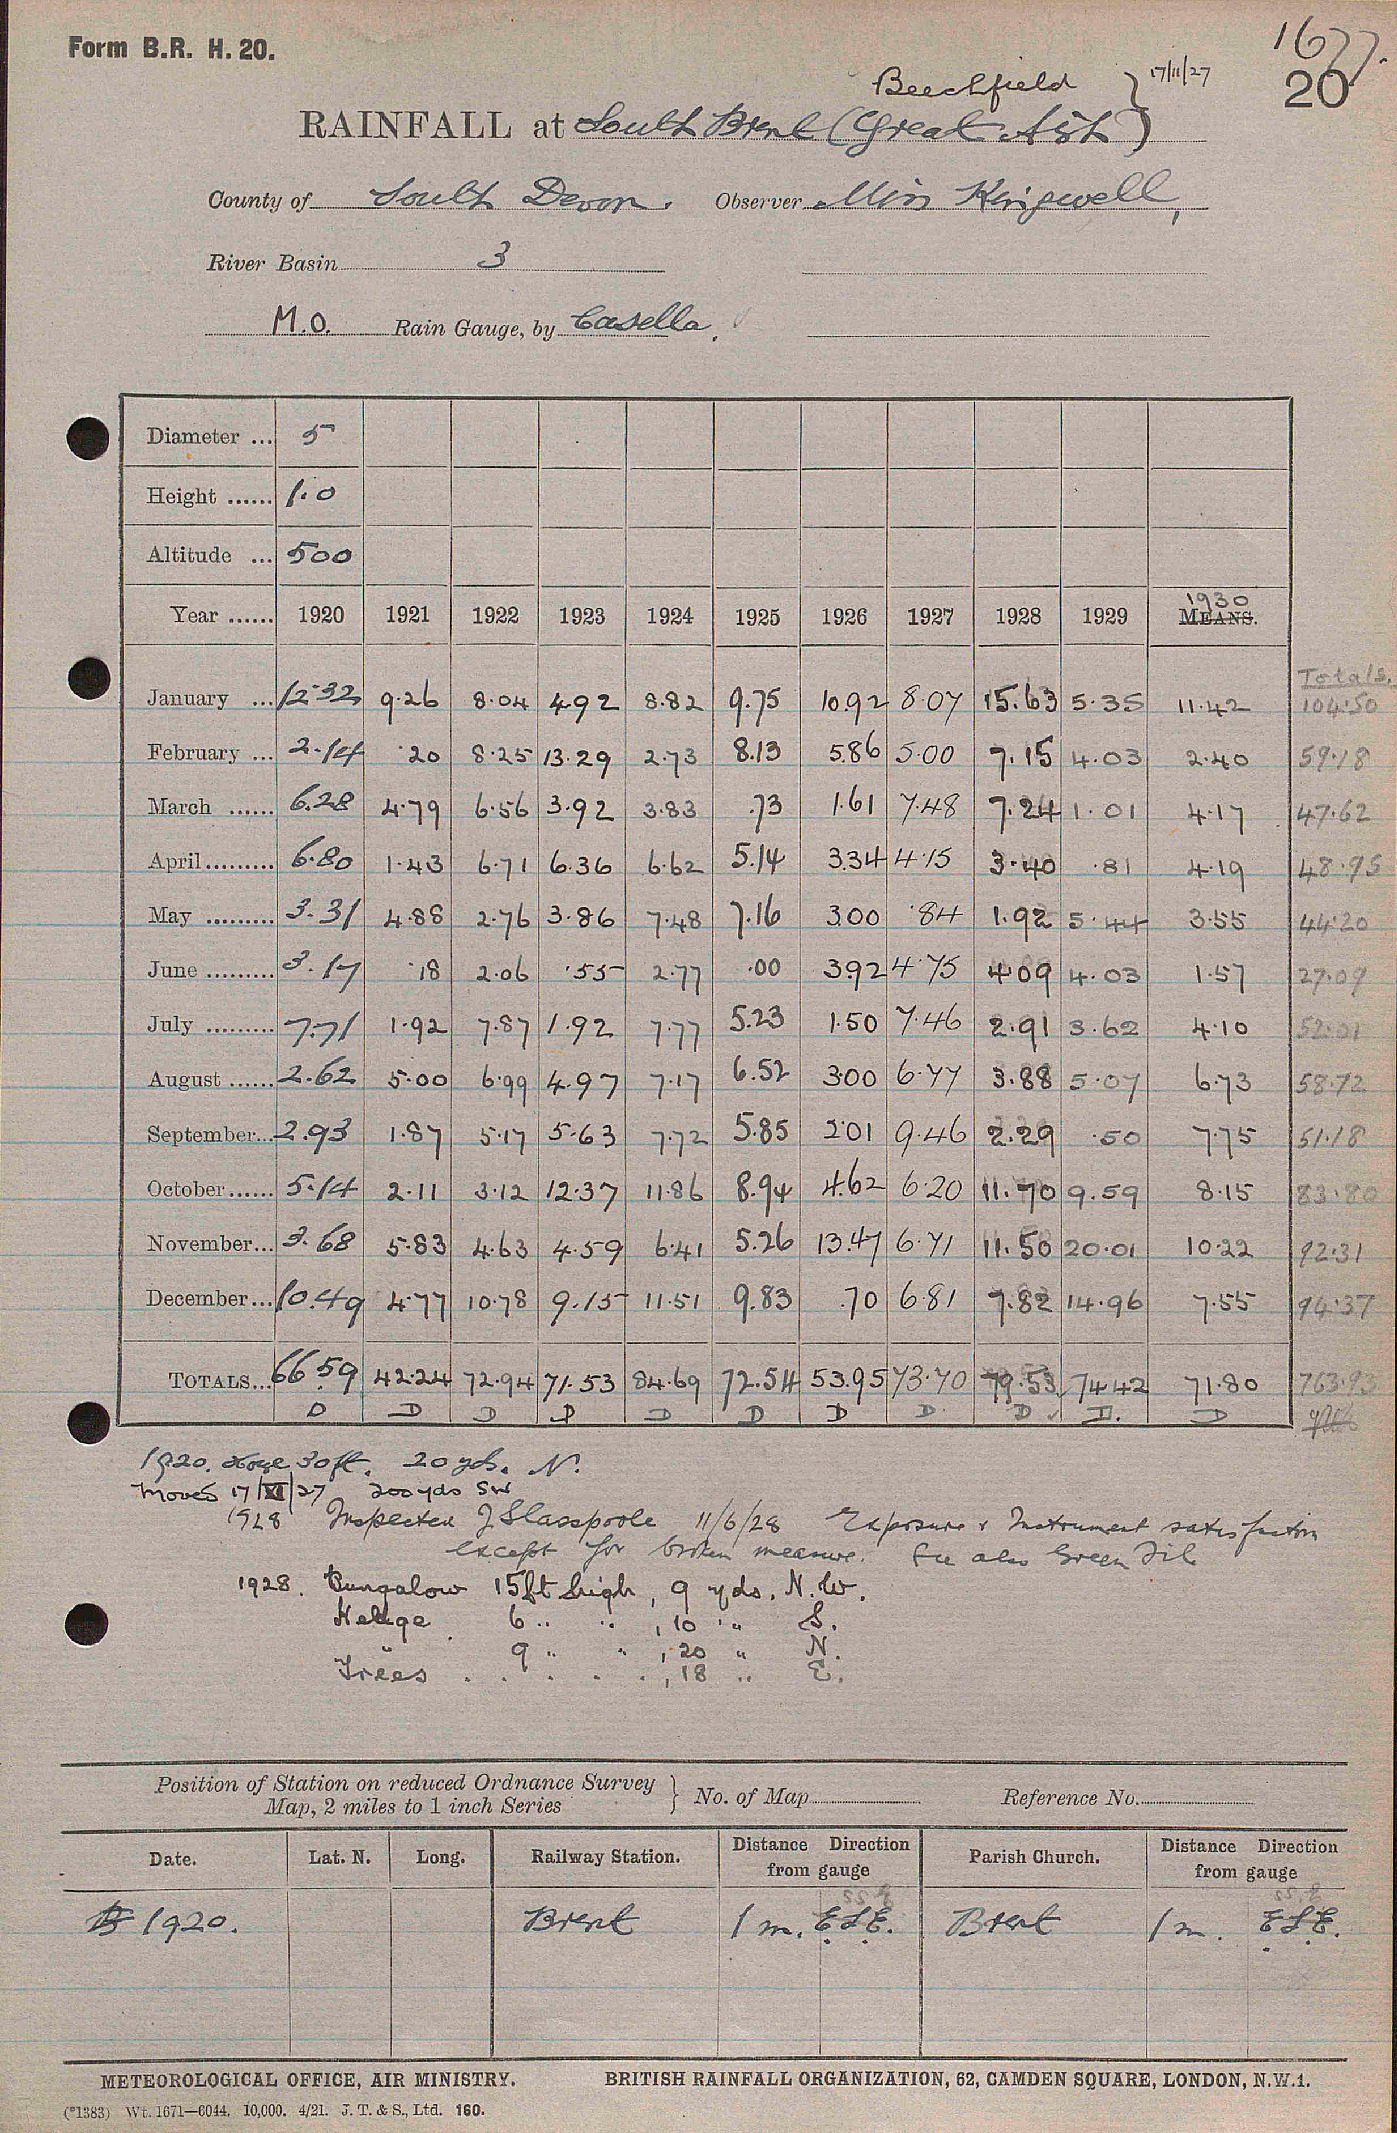 Form B.R. H. 20.
1677.
20
Beechfield } 17/11/27
RAINFALL at South Brent (Great Aish)
County of South Devon. Observer Miss Kingwell,
River Basin 3
M.O. Rain Gauge, by Casella.
Diameter ... 5
Height ...... 1.0
Altitude ... 500
Year ...... 1920 1921 1922 1923 1924 1925 1926 1927 1928 1929 1930 MEANS.
Totals.
January ... 12.32 9.26 8.04 4.92 8.82 9.75 10.92 8.07 15.63 5.35 11.42 104.50
February ... 2.14 .20 8.25 13.29 2.73 8.13 5.86 5.00 7.15 4.03 2.40 59.18
March ...... 6.28 4.79 6.56 3.92 3.83 .73 1.61 7.48 7.24 1.01 4.17 47.62
April ......... 6.80 1.43 6.71 6.36 6.62 5.14 3.34 4.15 3.40 .81 4.19 48.95
May ......... 3.31 4.88 2.76 3.86 7.48 7.16 3.00 .84 1.92 5.44 3.55 44.20
June ......... 3.17 .18 2.06 .55 2.77 .00 3.92 4.75 4.09 4.03 1.57 27.09
July ......... 7.71 1.92 7.87 1.92 7.77 5.23 1.50 7.46 2.91 3.62 4.10 52.01
August ...... 2.62 5.00 6.99 4.97 7.17 6.52 3.00 6.77 3.88 5.07 6.73 58.72
September... 2.93 1.87 5.17 5.63 7.72 5.85 2.01 9.46 2.29 .50 7.75 51.18
October...... 5.14 2.11 3.12 12.37 11.86 8.94 4.62 6.20 11.70 9.59 8.15 83.80
November... 3.68 5.83 4.63 4.59 6.41 5.26 13.47 6.71 11.50 20.01 10.22 92.31
December... 10.49 4.77 10.78 9.15 11.51 9.83 .70 6.81 7.82 14.96 7.55 94.37
TOTALS... 66.59 42.24 72.94 71.53 84.69 72.54 53.95 73.70 79.53 74.42 71.80 763.93
D D D D D D D D. D ✓ D. D
1920. House 30ft. 20 yds. N.
Moved 17/XI/27 200 yds SW
1928 Inspected J Glasspoole 11/6/28 Exposure & Instrument satisfactory
except for broken measure. See also Green File
1928. Bungalow 15ft high, 9 yds. N.W.
Hedge 6 " " , 10 " S.
" 9 " " , 20 " N.
Trees . . . . . , 18 " E.
Position of Station on reduced Ordnance Survey
Map, 2 miles to 1 inch Series } No. of Map Reference No.
Date. Lat. N. Long. Railway Station. Distance Direction from gauge Parish Church. Distance Direction from gauge
1920. Brent 1 m. ESE. Brent 1 m. ESE.
METEOROLOGICAL OFFICE, AIR MINISTRY. BRITISH RAINFALL ORGANIZATION, 62, CAMDEN SQUARE, LONDON, N.W.1.
(*1383) Wt. 1671—6044. 10,000. 4/21. J. T. & S., Ltd. 160.